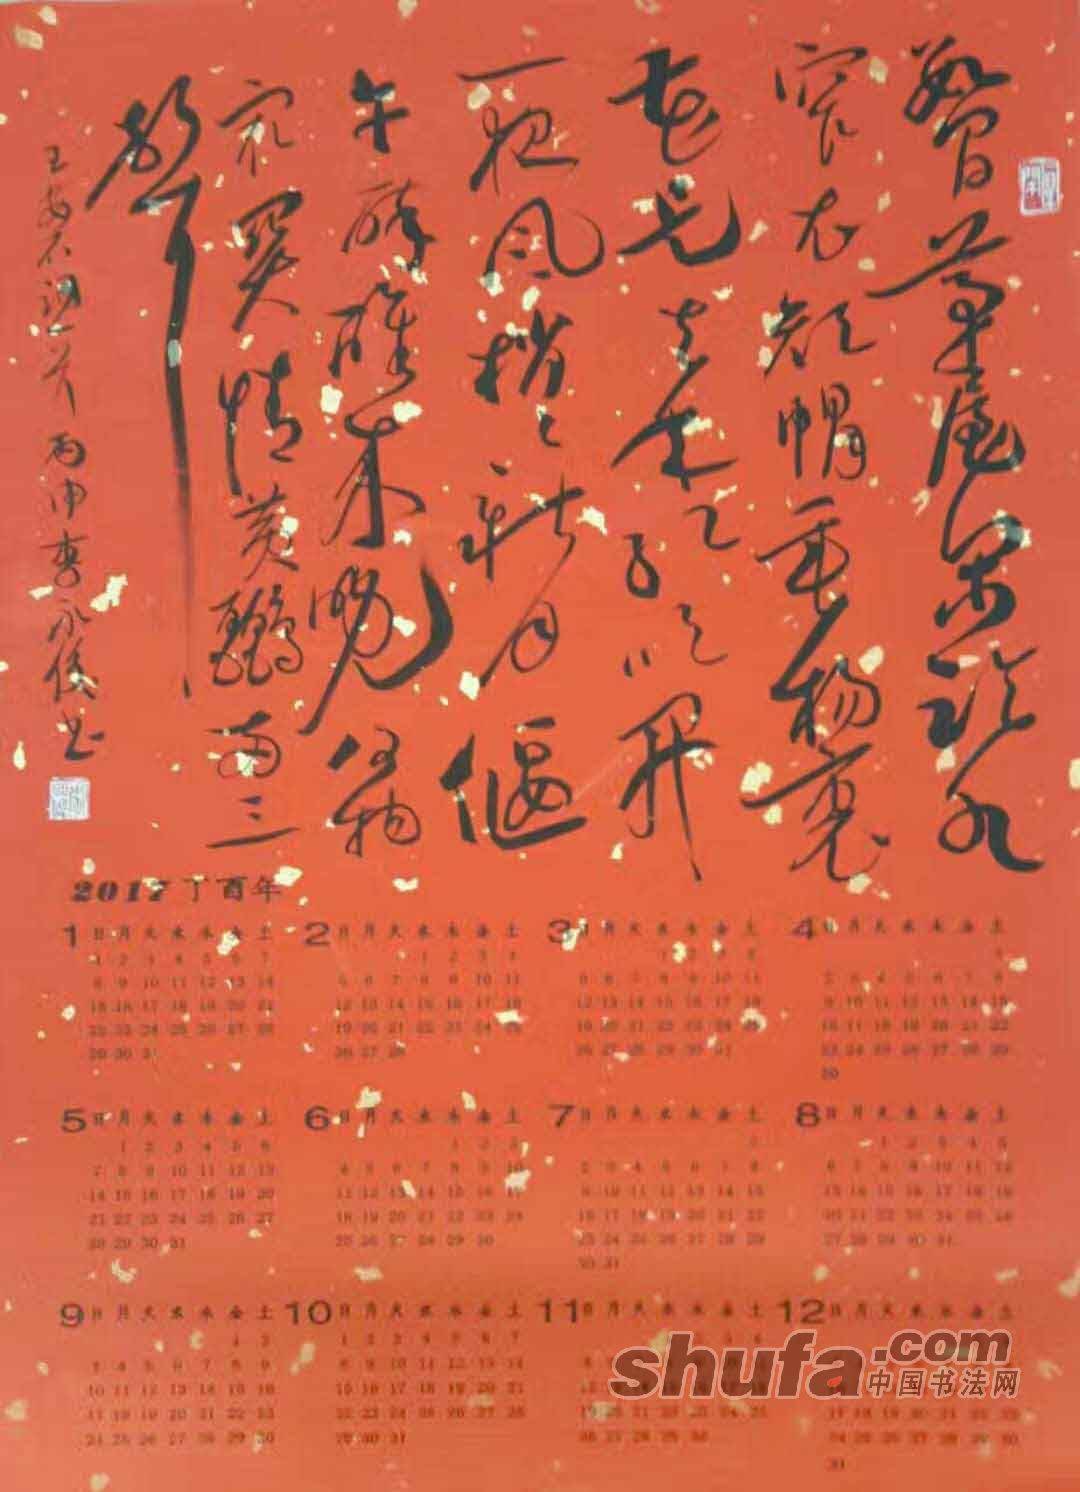 數間茅屋閑臨水
窄衣短帽垂楊裏
花是去年紅吹開
一夜風梢梢新月偃
午醉醒來晚何物
最関情黄鸝兩三
聲
王安石詞一首 丙申李永俊书
2017丁酉年
1 日 月 火 水 木 金 土
1 2 3 4 5 6 7
8 9 10 11 12 13 14
15 16 17 18 19 20 21
22 23 24 25 26 27 28
29 30 31
2 日 月 火 水 木 金 土
1 2 3 4
5 6 7 8 9 10 11
12 13 14 15 16 17 18
19 20 21 22 23 24 25
26 27 28
3 日 月 火 水 木 金 土
1 2 3 4
5 6 7 8 9 10 11
12 13 14 15 16 17 18
19 20 21 22 23 24 25
26 27 28 29 30 31
4 日 月 火 水 木 金 土
1
2 3 4 5 6 7 8
9 10 11 12 13 14 15
16 17 18 19 20 21 22
23 24 25 26 27 28 29
30
5 日 月 火 水 木 金 土
1 2 3 4 5 6
7 8 9 10 11 12 13
14 15 16 17 18 19 20
21 22 23 24 25 26 27
28 29 30 31
6 日 月 火 水 木 金 土
1 2 3
4 5 6 7 8 9 10
11 12 13 14 15 16 17
18 19 20 21 22 23 24
25 26 27 28 29 30
7 日 月 火 水 木 金 土
1
2 3 4 5 6 7 8
9 10 11 12 13 14 15
16 17 18 19 20 21 22
23 24 25 26 27 28 29
30 31
8 日 月 火 水 木 金 土
1 2 3 4 5
6 7 8 9 10 11 12
13 14 15 16 17 18 19
20 21 22 23 24 25 26
27 28 29 30 31
9 日 月 火 水 木 金 土
1 2
3 4 5 6 7 8 9
10 11 12 13 14 15 16
17 18 19 20 21 22 23
24 25 26 27 28 29 30
10 日 月 火 水 木 金 土
1 2 3 4 5 6 7
8 9 10 11 12 13 14
15 16 17 18 19 20 21
22 23 24 25 26 27 28
29 30 31
11 日 月 火 水 木 金 土
19 20 21 22 23 24 25
26 27 28 29 30
12 日 月 火 水 木 金 土
17 18 19 20 21 22 23
24 25 26 27 28 29 30
31
shufa.com
中国书法网